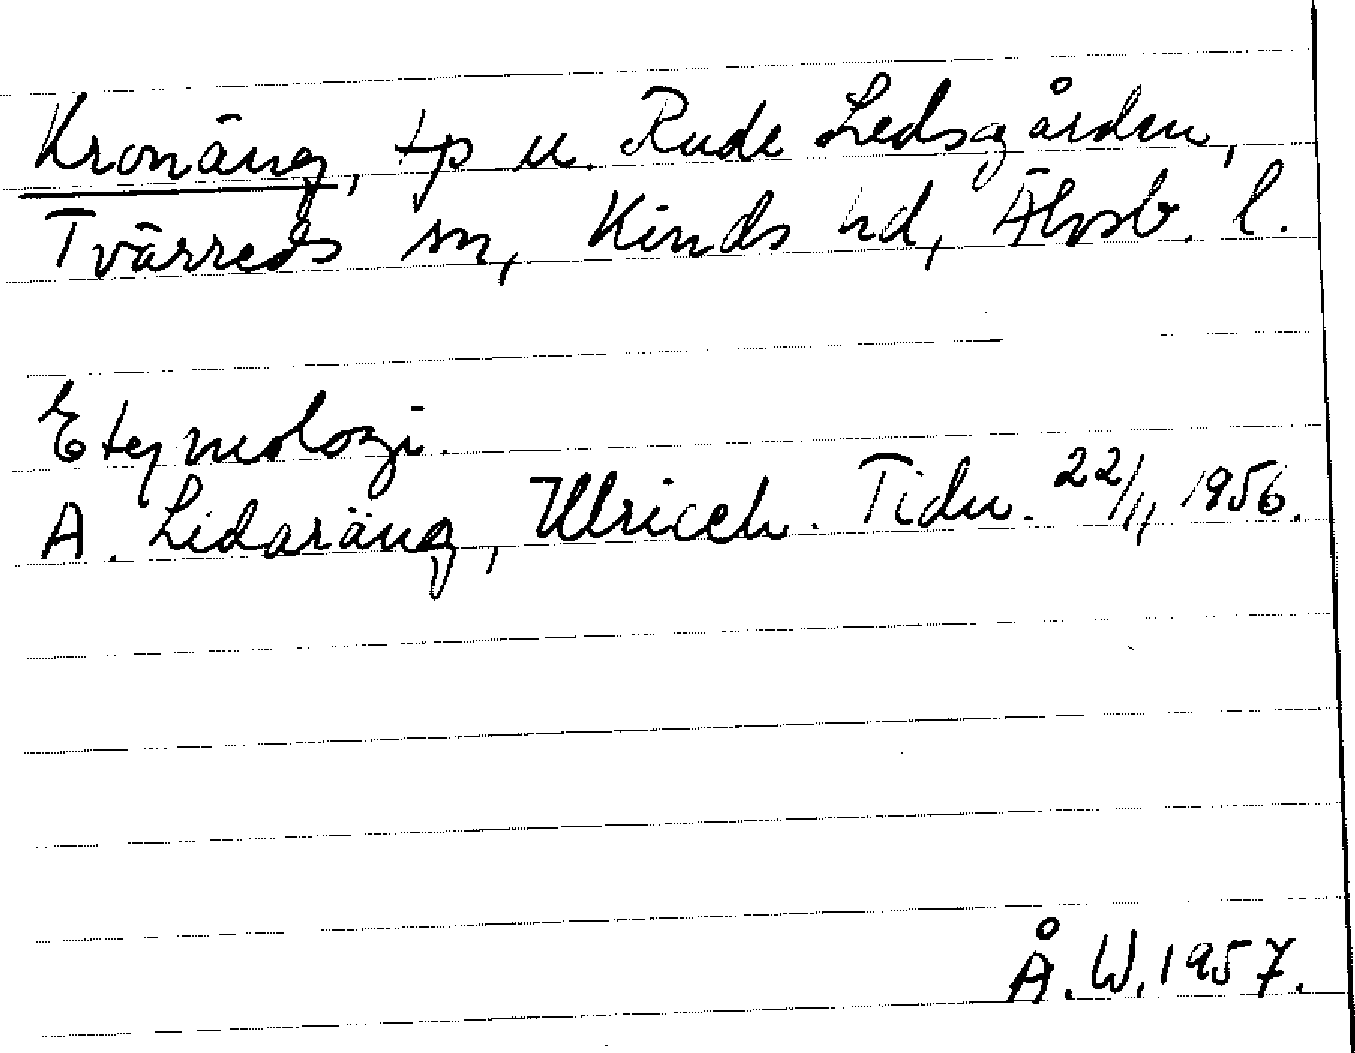 Kronäng, tp u. Rude Ledsgården,
Tvärreds sn, Kinds hd, Älvsb. l.
Etymologi.
A. Lidaräng, Ulriceh. Tidn. 22/11 1956.
Å. W. 1957.